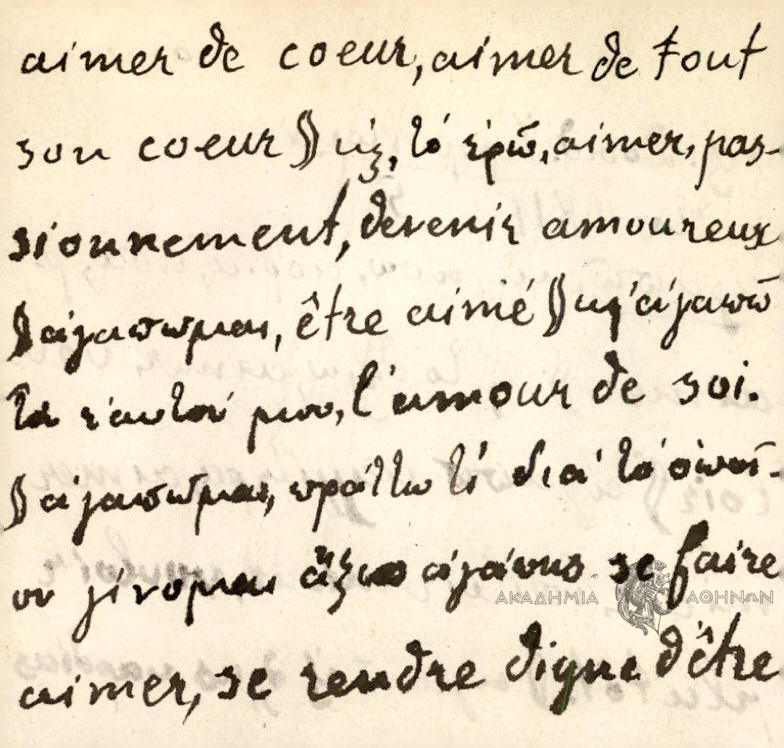 aimer de coeur, aimer de tout
son coeur
τό ἐρῶ, aimer, pas-
sionnement, devenir amoureux
ἀγαπῶμαι, être aimé ἀγαπῶ
τα ἑαυτού μου, l'amour de soi.
ἀγαπῶμαι, πράττω τί διά τό ὁποῖ-
ον γίνομαι ἄξιος ἀγάπης se faire
ΑΚΑΔΗΜΙΑ ΑΘΗΝΩΝ
aimer, se rendre digne d'être